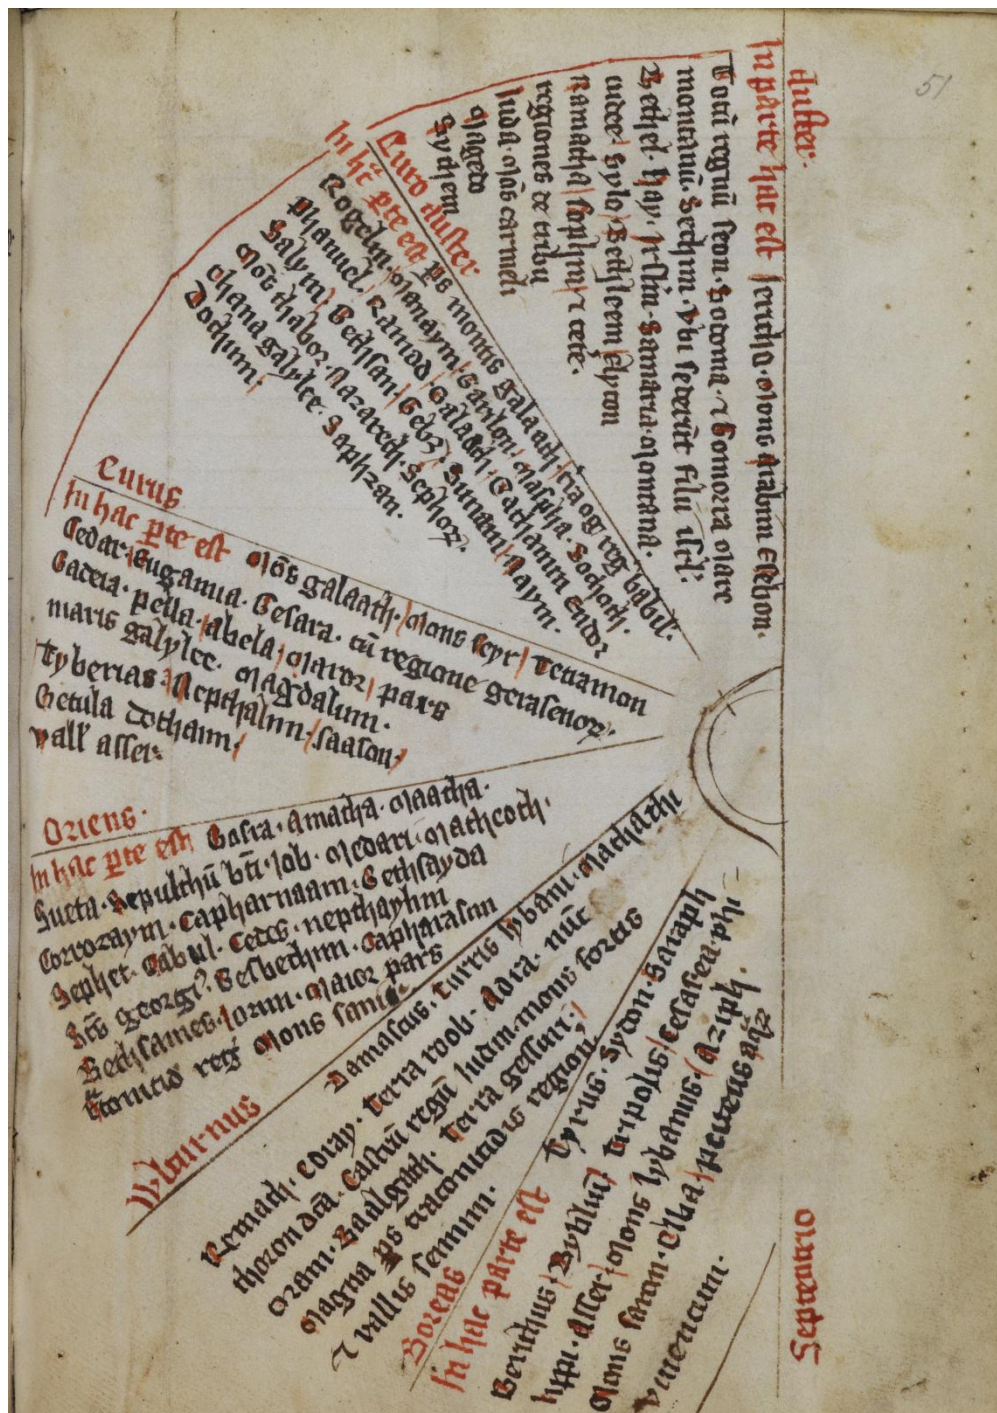 51
Auster.
In parte hac est Iericho. Mons Abarim Esebon.
Totū regnū seon. Sodoma. ⁊ Gomorra Mare
montanū. Sechim. Vbi sederūt filii isrl'.
Bethel. hay. Irlm. Samaria. Montana.
iudee. Sylo. Bethleem Chyron
Ramatha sophim ⁊ cete.
regiones de tribu
Iuda. Mōs carmeli
Magedo
Sychem
Euro Auster.
In hac p̄te est ps montis galaath. tra og reg. babil.
Rogelin. Manaym. Maspha. Sochoth.
Phanuel. Ramad. Galadith. Endor
Salym. Bethsan. Gelb. Sunam. Naym.
Mōs thabor. Nazareth. Sephor.
Chana galylee. Saphran.
Dochim
Eurus
In hac p̄te est Mōs galaath. Mons seyr Tetramon
Cedar. Eugania. Gesara. cū regione gerasenoꝝ.
Gadera. pella. Abela. Maror pars
maris galylee. Magdalum.
Tyberias. Nepthalim. saason.
Getula dothaim.
vall' asser.
Oriens.
In hac p̄te est Bosra. Amatha. Maatha.
Sueta. Sepulchū bti. Iob. Medari. Mathcoth.
Corozaym. Capharnaum. Bethsayda
Sephet. Cabul. Cedes. neptaylim
Scs georgi'. Capharasim
Bethsames. Iorim. Maior pars
reg. Mons sanir
Wlturnus
Damascus. Turris lybani. Machathi
Remath. Coray. Terra roob. Adra. nūc
thoron dcā. Castrū regū Iudin. mons fortis
Oram. Baalgath. Terra gessuri.
Magna ps traconitidis region.
⁊ vallis sennim.
Boreas
In hac parte est Tyrus. Sydon. Saraph
Berithus. Byblium Tripolis Cesarea. phi
lyppi. Asser. Mons lybanus. Aziph.
Mons saran. pluens
viuencium.
Septentrio